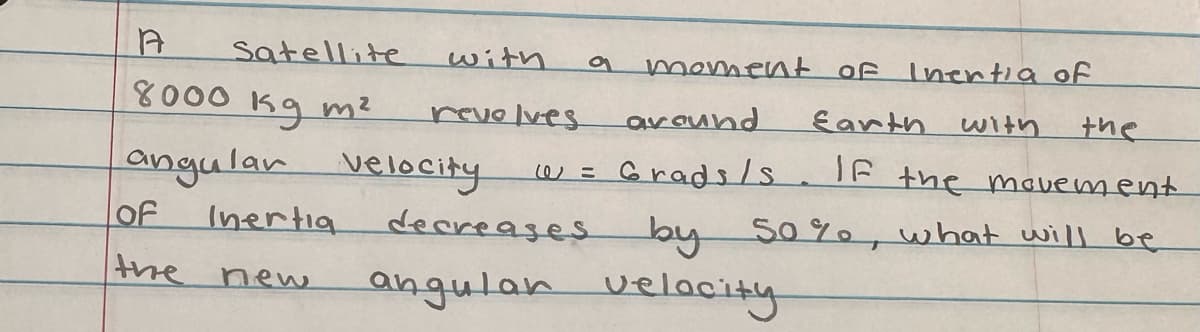 A satellite with a moment of Inertia of
8000 kg m² revolves around Earth with the
angular velocity ω = 6 rads/s. If the movement
of Inertia decreases by 50%, what will be
the new angular velocity